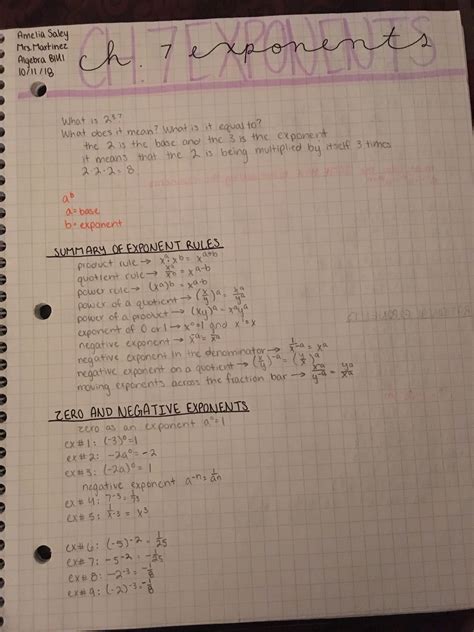 Amelia Saley
Mrs. Martinez
Algebra B1H1
10/11/18
CH. 7 EXPONENTS
ch. 7 exponents
What is 2³?
What does it mean? What is it equal to?
the 2 is the base and the 3 is the exponent
it means that the 2 is being multiplied by itself 3 times
2·2·2=8
aᵇ
a=base
b=exponent
SUMMARY OF EXPONENT RULES
product rule → xᵃ·xᵇ = xᵃ⁺ᵇ
quotient rule → xᵃ/xᵇ = xᵃ⁻ᵇ
power rule → (xᵃ)ᵇ = xᵃᵇ
power of a quotient → (x/y)ᵃ = xᵃ/yᵃ
power of a product → (xy)ᵃ = xᵃyᵃ
exponent of 0 or 1 → x⁰=1 and x¹=x
negative exponent → x⁻ᵃ = 1/xᵃ
negative exponent in the denominator → 1/x⁻ᵃ = xᵃ
negative exponent on a quotient → (x/y)⁻ᵃ = (y/x)ᵃ
moving exponents across the fraction bar → x⁻ᵃ/y⁻ᵃ = yᵃ/xᵃ
ZERO AND NEGATIVE EXPONENTS
zero as an exponent a⁰=1
ex#1: (-3)⁰=1
ex#2: -2a⁰ = -2
ex#3: (-2a)⁰ = 1
negative exponent a⁻ⁿ = 1/aⁿ
ex# 4: 7⁻³ = 1/7³
ex# 5: 1/x⁻³ = x³
ex#6: (-5)⁻² = 1/25
ex# 7: -5⁻² = -1/25
ex# 8: -2⁻³ = -1/8
ex# 9: (-2)⁻³ = -1/8